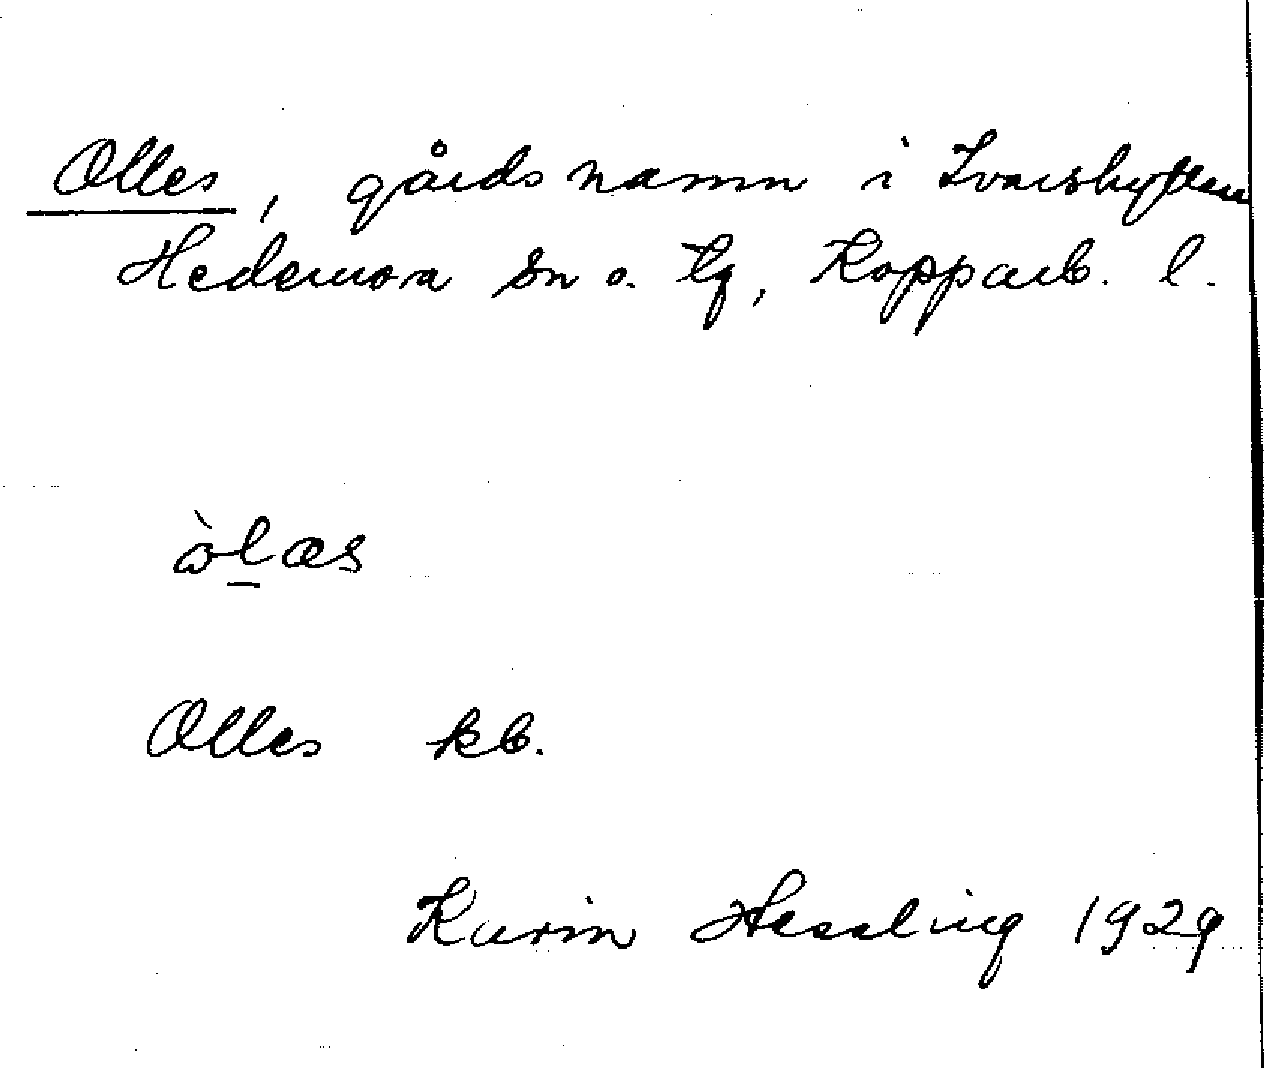 Olles, gårdsnamn i Ivarshyttan
Hedemora sn o. tg, Kopparb. l.
òlæs
Olles kb.
Karin Hessling 1929